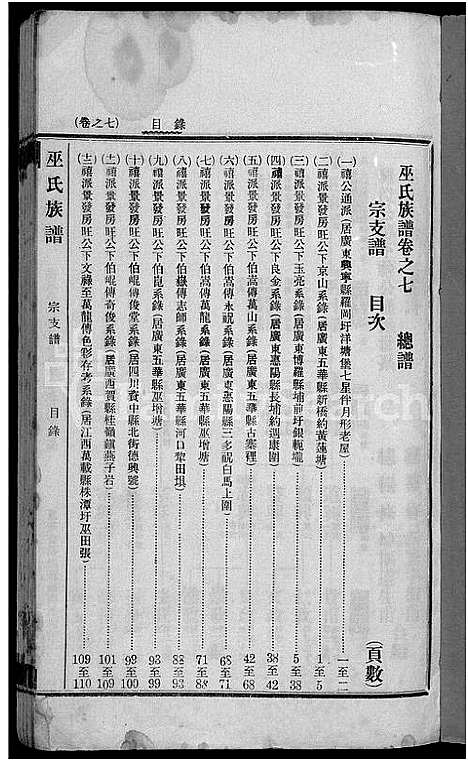 (卷之七) 目錄
巫氏族譜卷之七 總譜
宗支譜 目次 (頁數)
(一)禧公通派(居廣東興寧縣羅岡圩洋塘堡七星伴月形老屋)……一至二
(二)禧派景發房旺公下京山系錄(居廣東五華縣新橋約黃蓮塘)……1至5
(三)禧派景發房旺公下玉亮系錄(居廣東博羅縣埔前圩銀壠)……5至38
(四)禧派景發房旺公下良金系錄(居廣東惠陽縣長埔約週康圍)……38至42
(五)禧派景發房旺公下伯嵩傳萬山系錄(居廣東五華縣古寨裡)……42至68
(六)禧派景發房旺公下伯嵩傳永説系錄(居廣東惠陽縣三多祝白馬上圍)……68至71
(七)禧派景發房旺公下伯嵩傳萬龍系錄(居廣東五華縣巫增塘)……71至88
(八)禧派景發房旺公下伯嶽傳志師系錄(居廣東五華縣河口犂田埧)……88至93
(九)禧派景發房旺公下伯崑系錄(居廣東五華縣巫增塘)……93至99
(十)禧派景發房旺公下伯崐傳俊堂系錄(居四川資中縣北街德興號)……99至100
(十一)禧派景發房旺公下伯崐傳奇俊系錄(居廣西賀縣桂嶺鎮燕子岩)……100至101
(十二)禧派景發房旺公下文祿至萬龍傳色彩存考系錄(居江西萬載縣株潭圩巫田張)……109至110
巫氏族譜 宗支譜 目錄